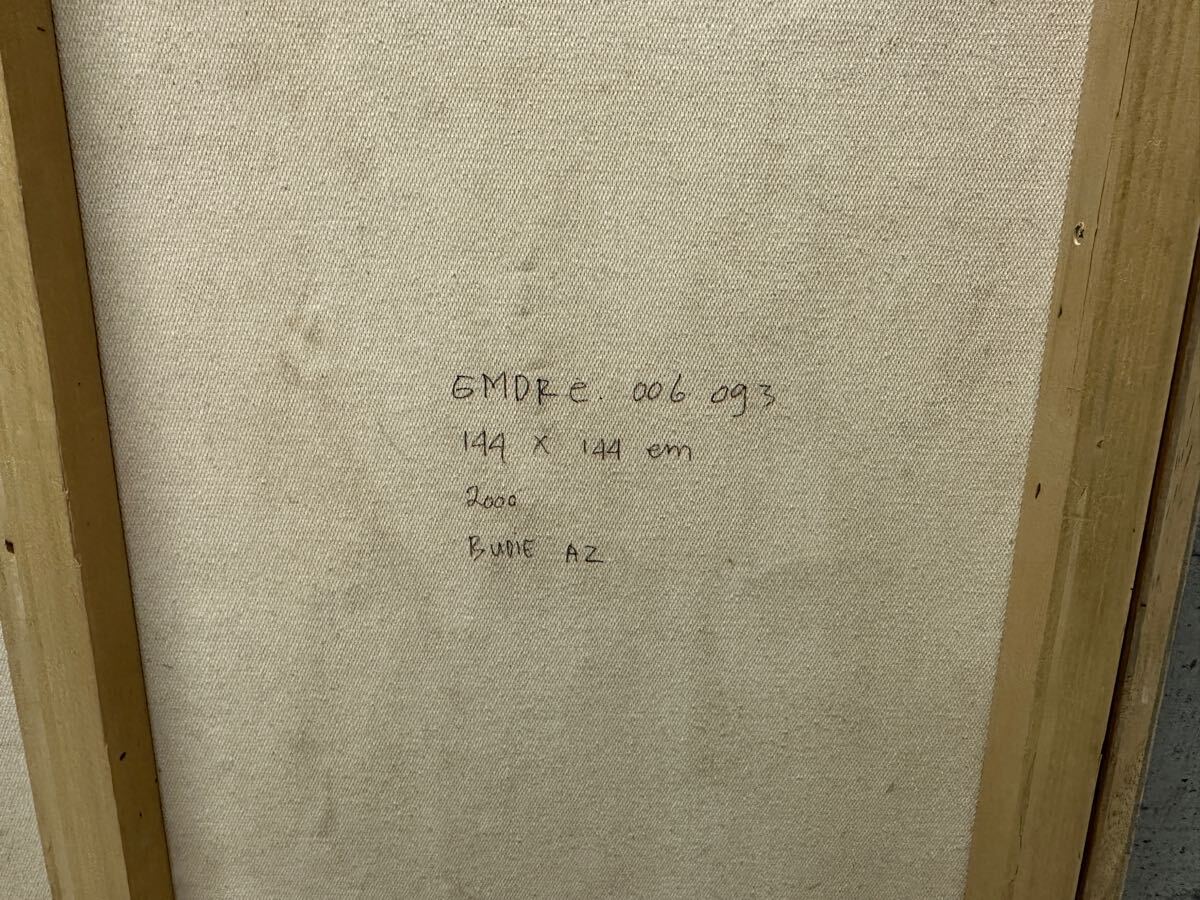 GMDRe. 006 093
144 X 144 cm
2000
BUDIE AZ